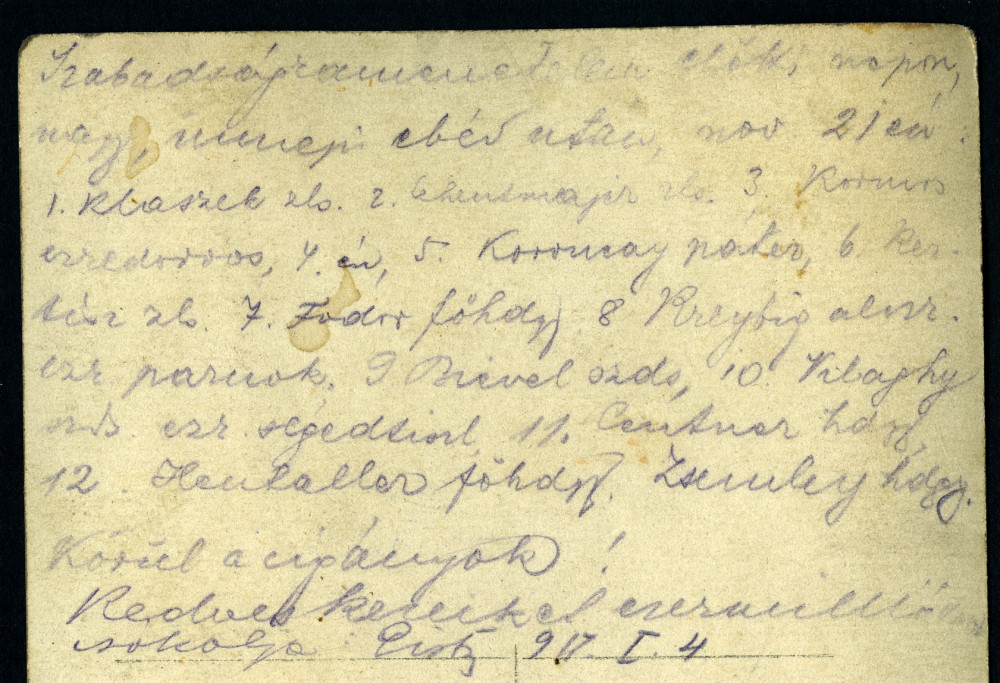 Szabadságramenetelem előtti napon,
nagy, ünnepi ebéd után, nov 21 én.
1. Klaszek zls. 2. zls. 3. Kormos
ezredorvos, 4. én, 5. Koroncay páter, 6. Ker-
tész zls. 7. Fodor főhdgy 8 Kreybig alezr.
ezr parnok, 9 Bievel szds, 10. Világhy
szds ezr segédtiszt 11. Centner hdgy,
12. Henkaller főhdgy. Zsemley hdgy.
Körül a cigányok!
Kedves kezeiket ezermilliószor
csókolja 917. I. 4